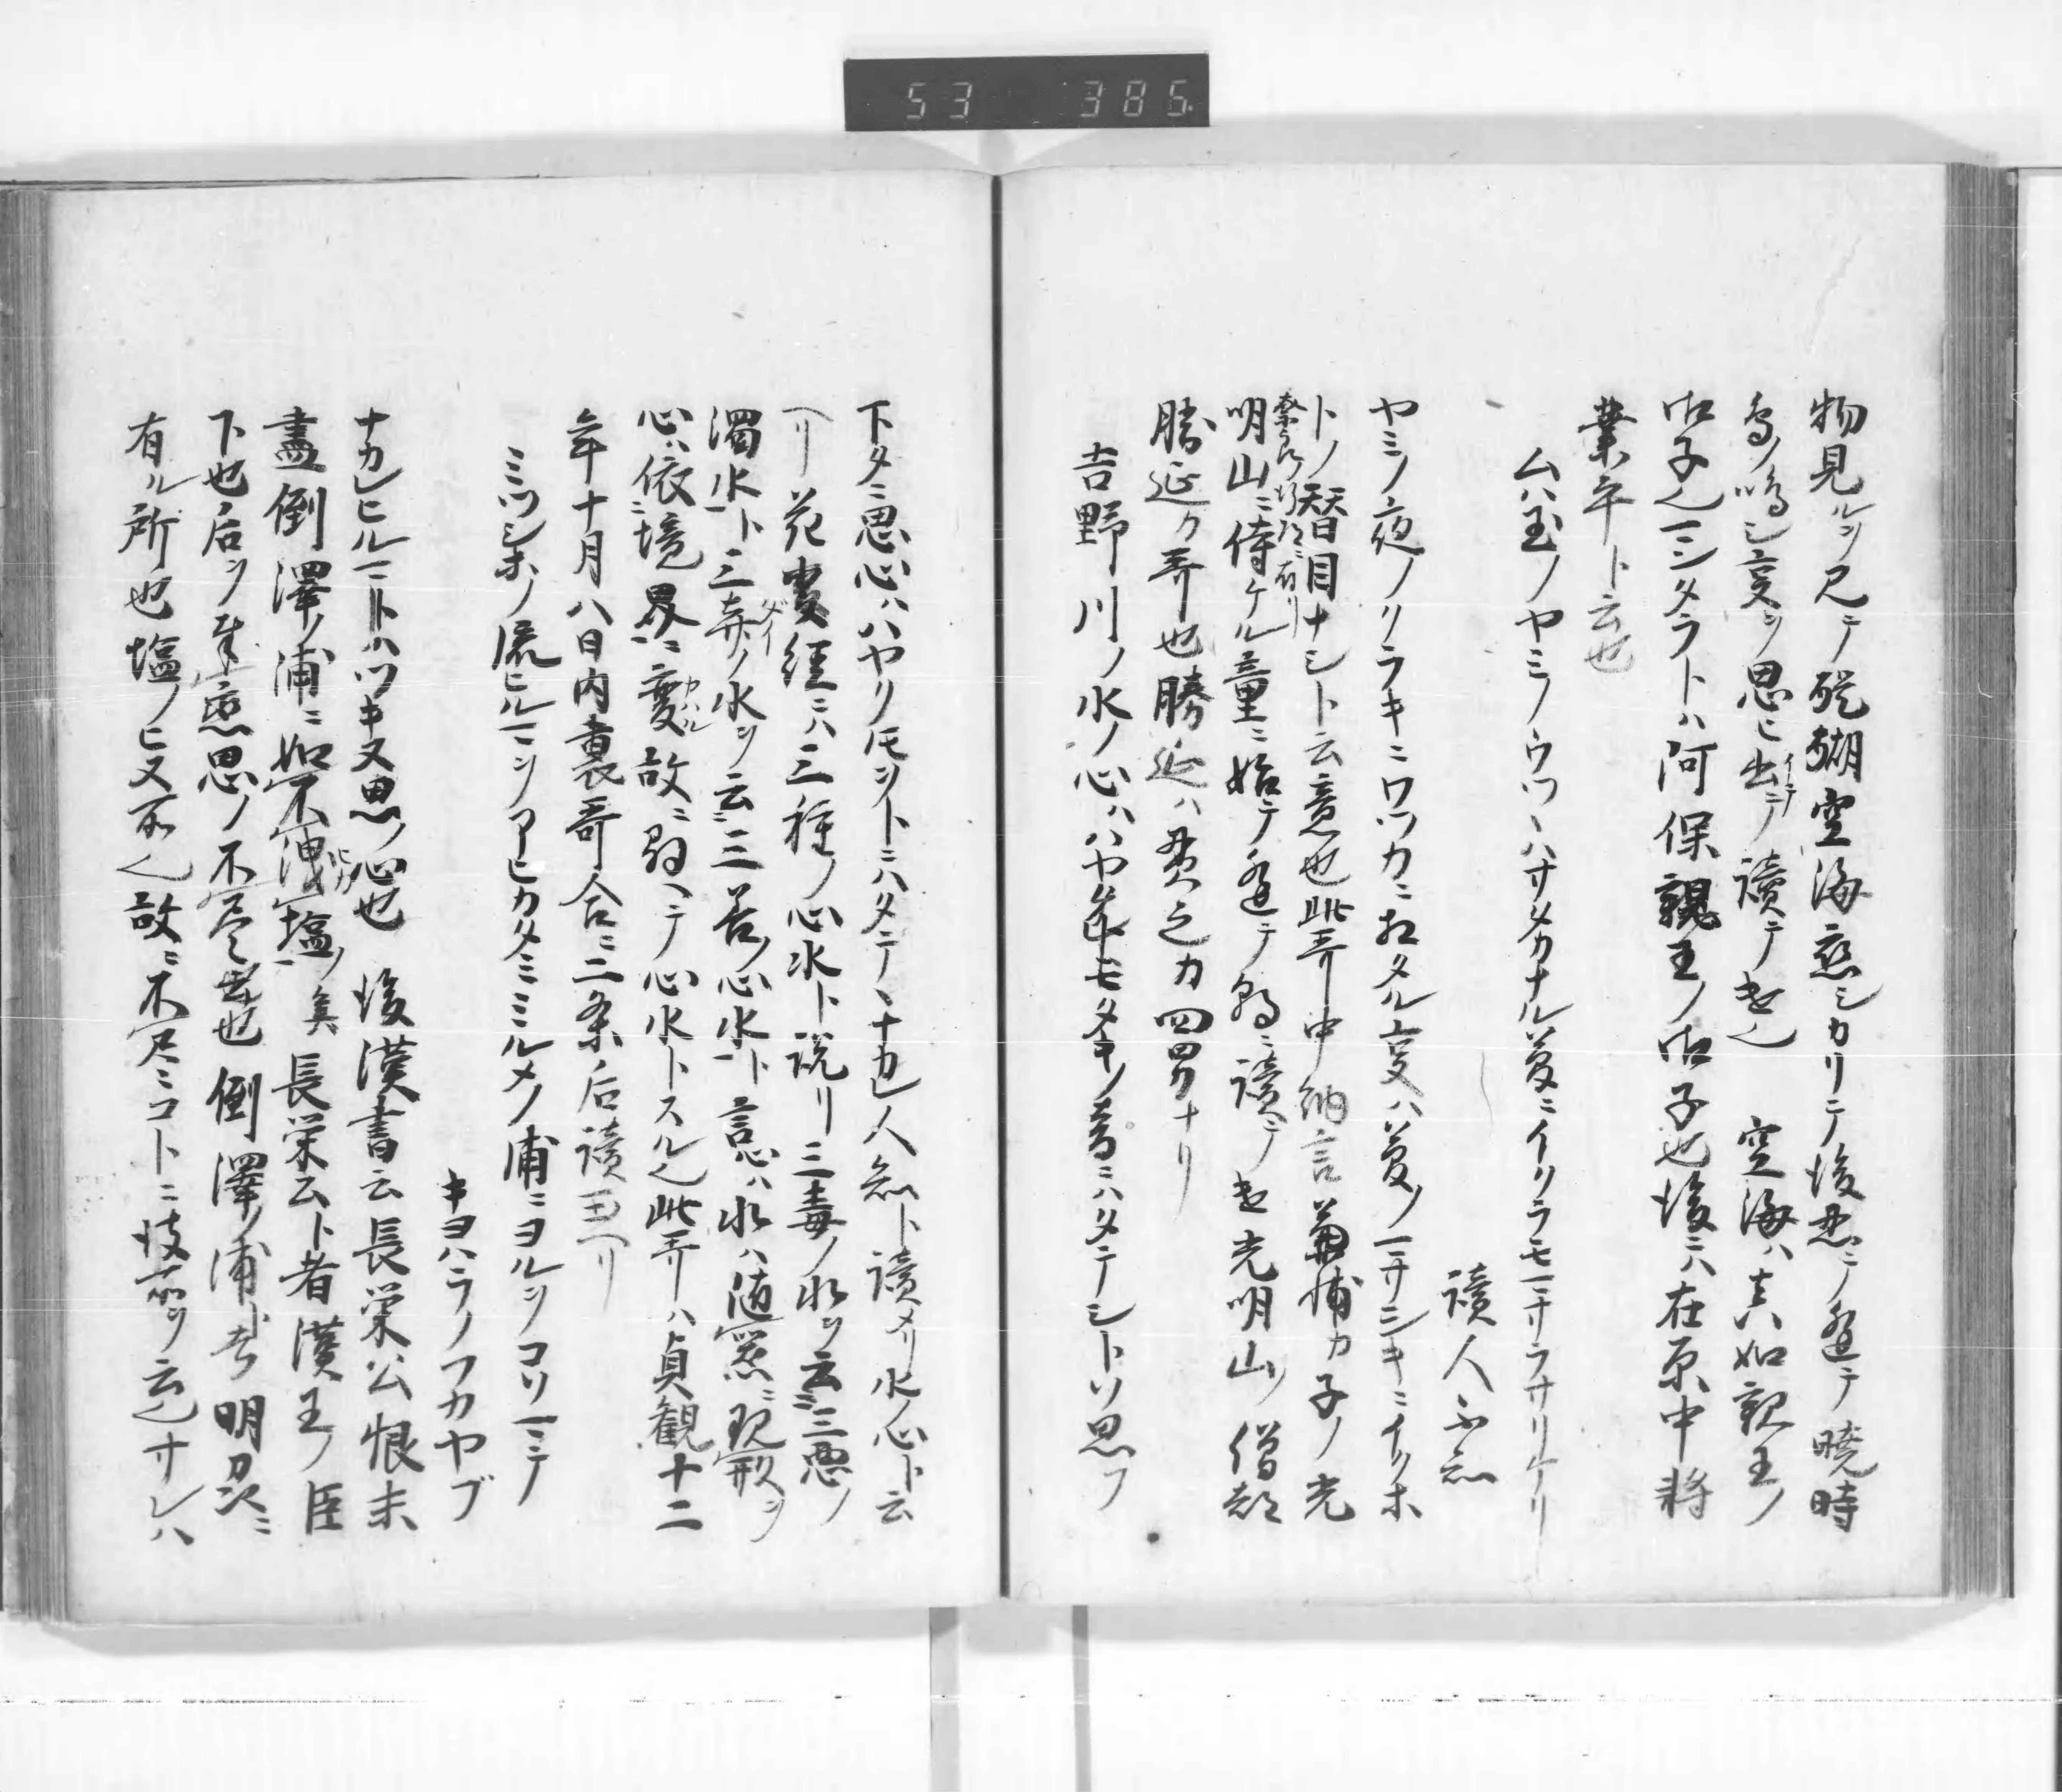 53 386
物見ルヲ見テ醍醐空海恋シカリテ後忍ニテ逢テ暁時
鳥ノ鳴シ夏ヲ思ヒ出テ讀テ
御子也マシタラトハ阿保親王ノ御子也後ニハ在原中将
業平ト云也
ムハ玉ノヤミノウツヽハサタカナル夢ニイクラモマサラサリケリ
讀人不知
ヤミノ夜ノクラキニワツカニ相タル夏ハ夢ノマサシキニイクホ
トノ替目ナシト云意也此哥中納言兼捕カ子ノ光
明山ニ侍ケル童ニ始テ逢テ朝ニ讀テ光明山ノ僧都
勝延カ哥也勝延ハ貫之カ四男ナリ
吉野川ノ水ノ心ハハヤクトモタキノ音ニハタテシトソ思フ
下タニ思心ハハヤクトモソトニハタテヽナカレ人知ト讀メリ水ノ心ト云
ヘリ花嚴経ニハ三種ノ心水ト説リ三毒ノ水ヲ云三悪ノ
濁水ト三弃ノ水ヲ云三善ノ心水ト言心ハ水ハ随器ニ現形ヲ
心ハ依境界ニ変故ニ心水トスル也此哥ハ貞観十二
年十月八日内裏哥合ニ二条后讀ヨヘリ
ミツシホノ流ヒルマヲアヒカタミミルメノ浦ニヨルヲコソマテ
キヨハラノフカヤブ
ナカレヒルマトハツキヌ思ノ心也 後漢書云長栄公恨未
盡倒澤ノ浦ニ如不洩塩ノ矣 長栄公ト者漢王ノ臣
下也后ヲ奉恋思ノ不尽云也 倒澤ノ浦ト者明州ニ
有ル所也塩ノヒヌ所也故ニ不尽コトニ彼所ヲ云也サレハ